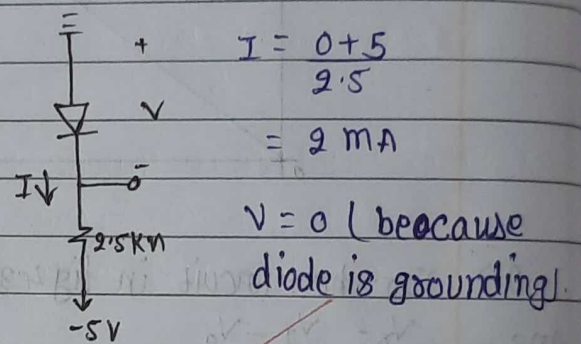 +
V
I↓
o-
2.5KΩ
-5V
I = 0+5
2.5
= 2 mA
V = 0 ( beocause
diode is grounding).